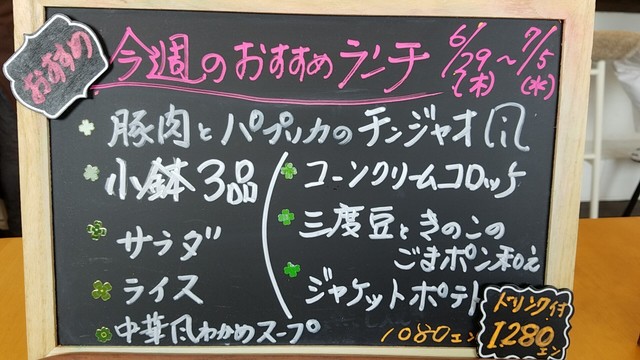 おすすめ
今週のおすすめランチ
6/29(木)～7/5(水)
豚肉とパプリカのチンジャオ風
小鉢3品
コーンクリームコロッケ
三度豆ときのこの
ごまポン和え
ジャケットポテト
サラダ
ライス
中華風わかめスープ
1080エン
ドリンク付
1280エン